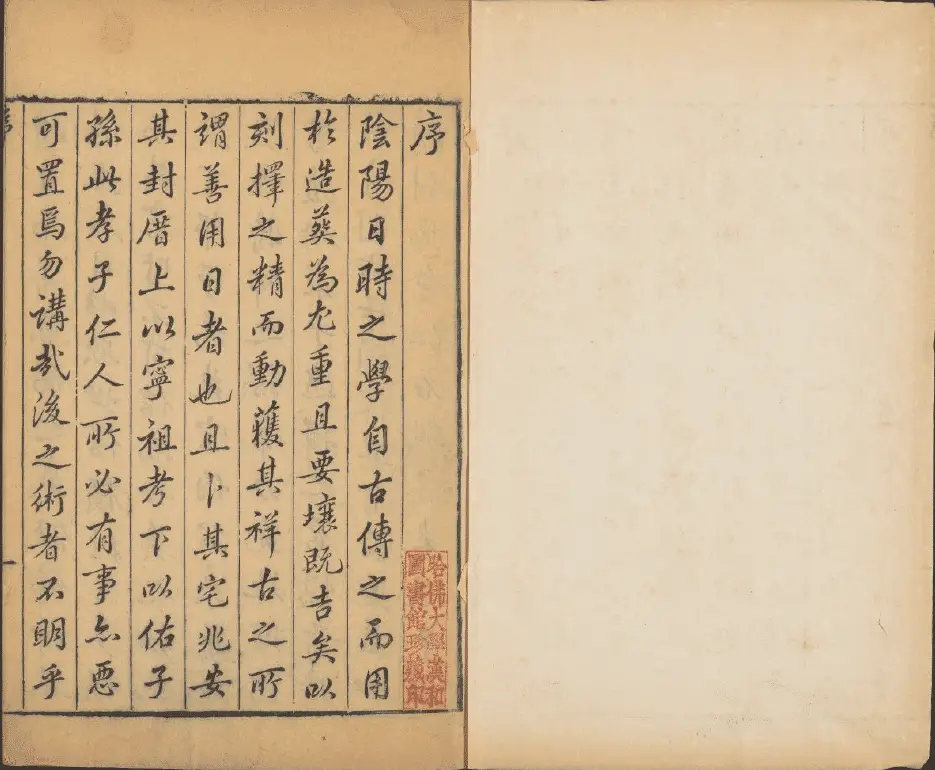 序
陰陽日時之學自古傳之而用
於造葬為尤重且要壤既吉矣以
刻擇之精而動獲其祥古之所
謂善用日者也且卜其宅兆安
其封厝上以寧祖考下以佑子
孫此孝子仁人所必有事亦惡
可置焉勿講哉後之術者不明乎
哈佛大學漢和
圖書館珍藏印